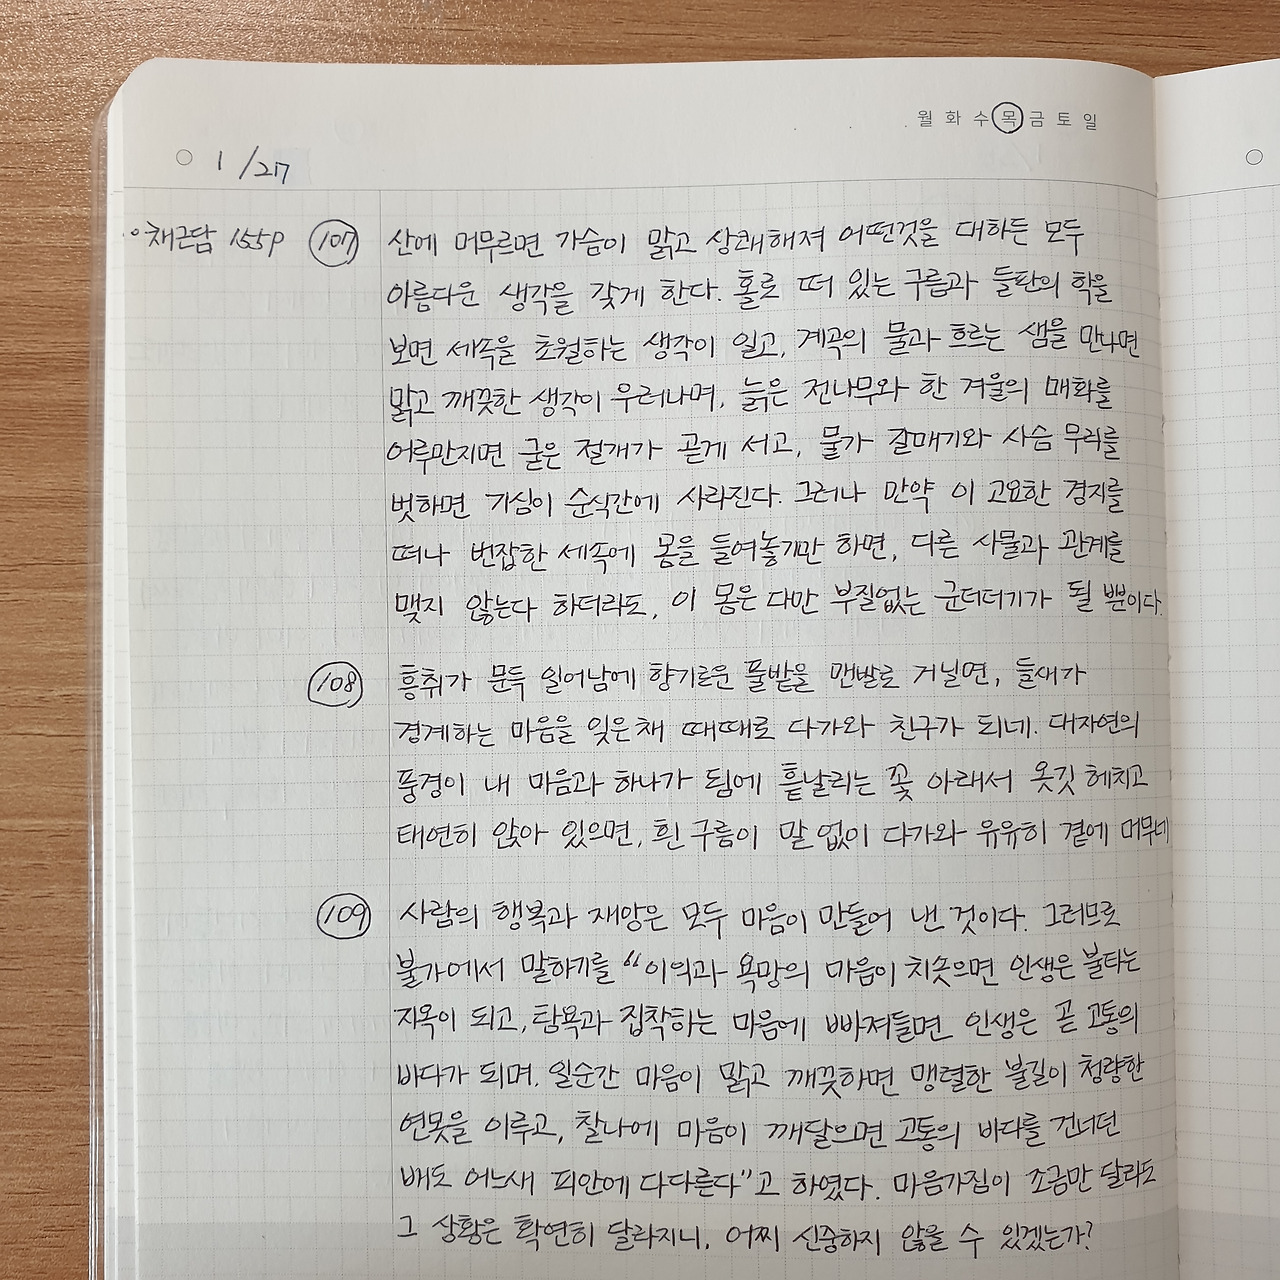 월 화 수 목 금 토 일
1/27
채근담 155P 107 산에 머무르면 가슴이 맑고 상쾌해져 어떤것을 대하든 모두
아름다운 생각을 갖게 한다. 홀로 떠 있는 구름과 들판의 학을
보면 세속을 초월하는 생각이 일고, 계곡의 물과 흐르는 샘을 만나면
맑고 깨끗한 생각이 우러나며, 늙은 전나무와 한 겨울의 매화를
어루만지면 굳은 절개가 곧게 서고, 물가 갈매기와 사슴 무리를
벗하면 기심이 순식간에 사라진다. 그러나 만약 이 고요한 경지를
떠나 번잡한 세속에 몸을 들여놓기만 하면, 다른 사물과 관계를
맺지 않는다 하더라도, 이 몸은 다만 부질없는 군더더기가 될 뿐이다.
108 흥취가 문득 일어남에 향기로운 풀밭을 맨발로 거닐면, 들새가
경계하는 마음을 잊은채 때때로 다가와 친구가 되네. 대자연의
풍경이 내 마음과 하나가 됨에 흩날리는 꽃 아래서 옷깃 헤치고
태연히 앉아 있으면, 흰 구름이 말 없이 다가와 유유히 곁에 머무네
109 사람의 행복과 재앙은 모두 마음이 만들어 낸 것이다. 그러므로
불가에서 말하기를 "이익과 욕망의 마음이 치솟으면 인생은 불타는
지옥이 되고, 탐욕과 집착하는 마음에 빠져들면 인생은 곧 고통의
바다가 되며. 일순간 마음이 맑고 깨끗하면 맹렬한 불길이 청량한
연못을 이루고, 찰나에 마음이 깨달으면 고통의 바다를 건너던
배도 어느새 피안에 다다른다"고 하였다. 마음가짐이 조금만 달라도
그 상황은 확연히 달라지니, 어찌 신중하지 않을 수 있겠는가?